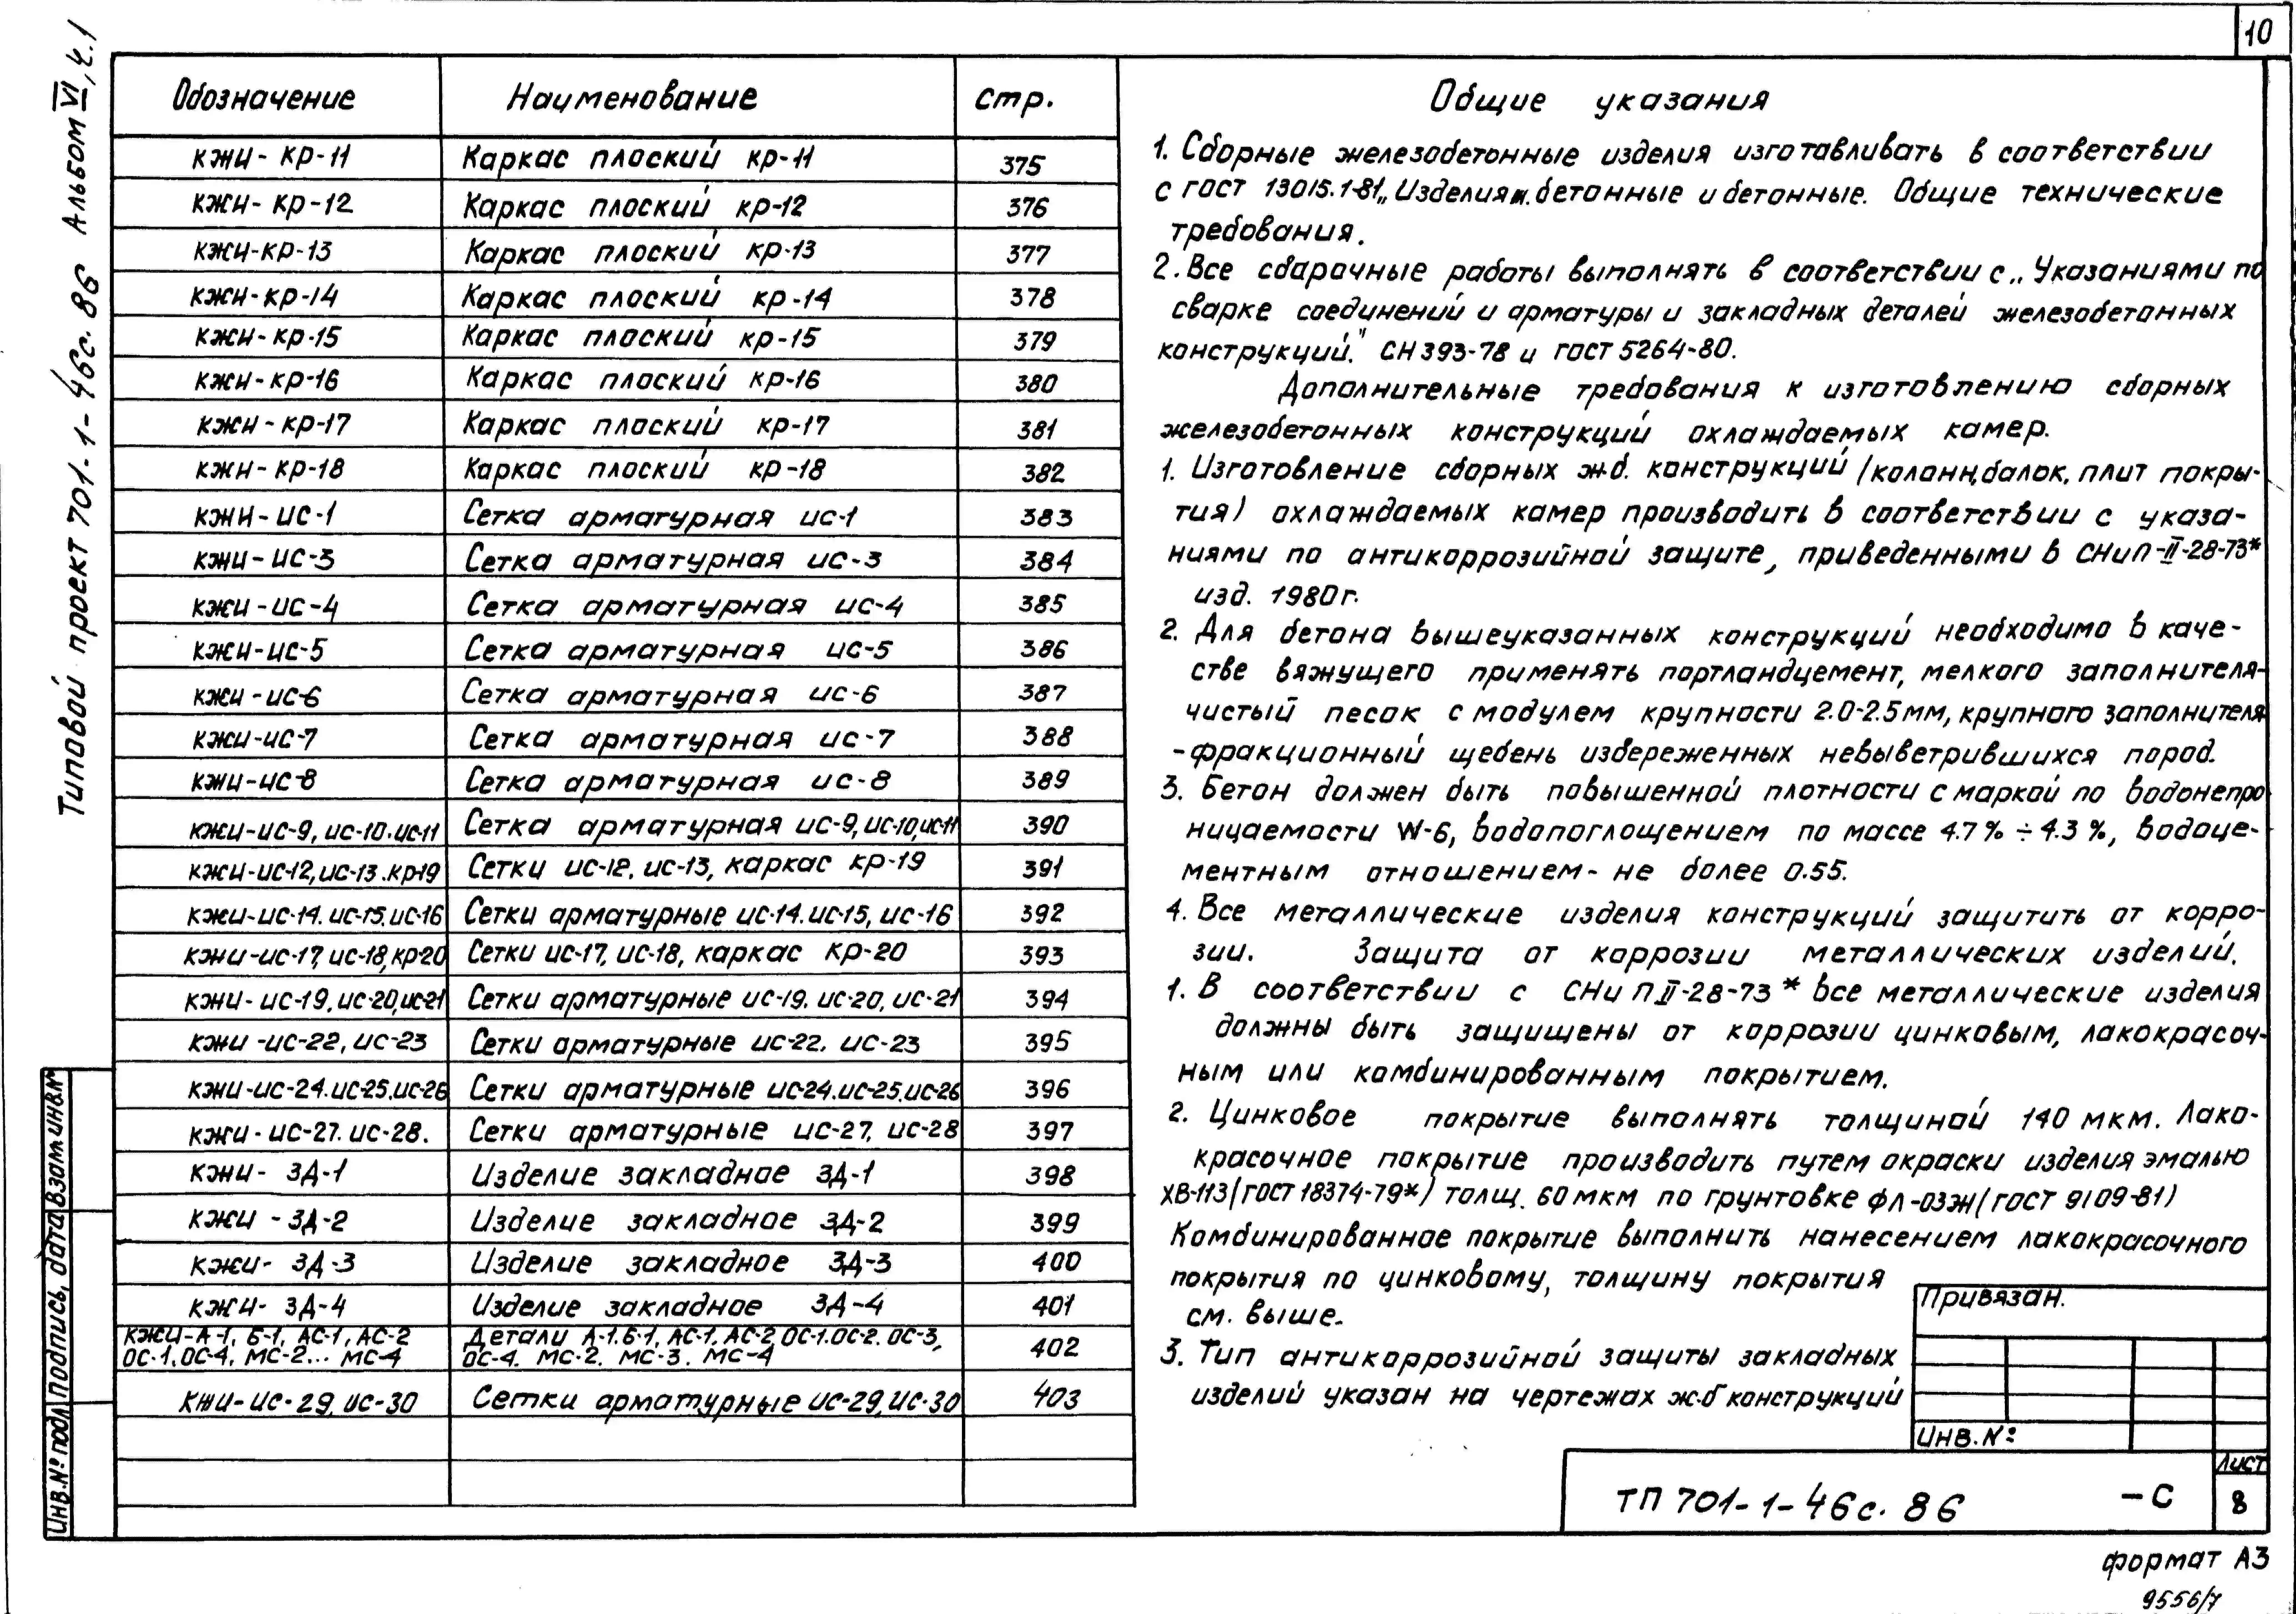 10
Типовой проект 701-1-46с.86 Альбом VI, ч.1
Обозначение Наименование Стр.
КЖИ-КР-11 Каркас плоский КР-11 375
КЖИ-КР-12 Каркас плоский КР-12 376
КЖИ-КР-13 Каркас плоский КР-13 377
КЖИ-КР-14 Каркас плоский КР-14 378
КЖИ-КР-15 Каркас плоский КР-15 379
КЖИ-КР-16 Каркас плоский КР-16 380
КЖИ-КР-17 Каркас плоский КР-17 381
КЖИ-КР-18 Каркас плоский КР-18 382
КЖИ-ИС-1 Сетка арматурная ИС-1 383
КЖИ-ИС-3 Сетка арматурная ИС-3 384
КЖИ-ИС-4 Сетка арматурная ИС-4 385
КЖИ-ИС-5 Сетка арматурная ИС-5 386
КЖИ-ИС-6 Сетка арматурная ИС-6 387
КЖИ-ИС-7 Сетка арматурная ИС-7 388
КЖИ-ИС-8 Сетка арматурная ИС-8 389
КЖИ-ИС-9, ИС-10. ИС-11 Сетка арматурная ИС-9, ИС-10, ИС-11 390
КЖИ-ИС-12, ИС-13. КР-19 Сетки ИС-12. ИС-13, каркас КР-19 391
КЖИ-ИС-14. ИС-15. ИС-16 Сетки арматурные ИС-14. ИС-15, ИС-16 392
КЖИ-ИС-17, ИС-18, КР-20 Сетки ИС-17, ИС-18, каркас КР-20 393
КЖИ-ИС-19. ИС-20, ИС-21 Сетки арматурные ИС-19. ИС-20, ИС-21 394
КЖИ-ИС-22, ИС-23 Сетки арматурные ИС-22. ИС-23 395
КЖИ-ИС-24. ИС-25. ИС-26 Сетки арматурные ИС-24. ИС-25. ИС-26 396
КЖИ-ИС-27. ИС-28. Сетки арматурные ИС-27, ИС-28 397
КЖИ-ЗД-1 Изделие закладное ЗД-1 398
КЖИ-ЗД-2 Изделие закладное ЗД-2 399
КЖИ-ЗД-3 Изделие закладное ЗД-3 400
КЖИ-ЗД-4 Изделие закладное ЗД-4 401
КЖИ-А-1, Б-1, АС-1, АС-2 Детали А-1. Б-1, АС-1. АС-2, ОС-1. ОС-2. ОС-3,
ОС-1. ОС-4. МС-2... МС-4 ОС-4. МС-2. МС-3. МС-4 402
КЖИ-ИС-29, ИС-30 Сетки арматурные ИС-29, ИС-30 403
Общие указания
1. Сборные железобетонные изделия изготавливать в соответствии
с ГОСТ 13015.1-81 „Изделия ж.бетонные и бетонные. Общие технические
требования.
2. Все сварочные работы выполнять в соответствии с „Указаниями по
сварке соединений и арматуры и закладных деталей железобетонных
конструкций." СН 393-78 и ГОСТ 5264-80.
Дополнительные требования к изготовлению сборных
железобетонных конструкций охлаждаемых камер.
1. Изготовление сборных ж.б. конструкций /колонн, балок, плит покры-
тия) охлаждаемых камер производить в соответствии с указа-
ниями по антикоррозийной защите, приведенными в СНиП-II-28-73*
изд. 1980 г.
2. Для бетона вышеуказанных конструкций необходимо в каче-
стве вяжущего применять портландцемент, мелкого заполнителя-
чистый песок с модулем крупности 2.0-2.5мм, крупного заполнителя
-фракционный щебень избереженных невыветрившихся пород.
3. Бетон должен быть повышенной плотности с маркой по водонепро
ницаемости W-6, водопоглощением по массе 4.7% ÷ 4.3%, водоце-
ментным отношением- не более 0.55.
4. Все металлические изделия конструкций защитить от корро-
зии. Защита от коррозии металлических изделий.
1. В соответствии с СНиП II-28-73* все металлические изделия
должны быть защищены от коррозии цинковым, лакокрасоч-
ным или комбинированным покрытием.
2. Цинковое покрытие выполнять толщиной 140 мкм. Лако-
красочное покрытие производить путем окраски изделия эмалью
ХВ-113 (ГОСТ 18374-79*) толщ. 60 мкм по грунтовке ФЛ-03Ж (ГОСТ 9109-81)
Комбинированное покрытие выполнить нанесением лакокрасочного
покрытия по цинковому, толщину покрытия
см. выше.
3. Тип антикоррозийной защиты закладных
изделий указан на чертежах ж.б конструкций
Привязан.
Инв. №:
ТП 701-1-46с.86 -С
Лист
8
Инв.№ подл Подпись, дата Взам инв.№
формат А3
9556/7